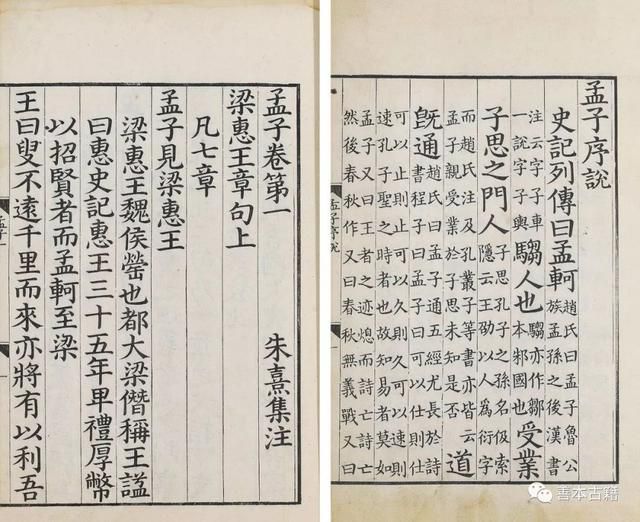 孟子序說
史記列傳曰孟軻趙氏曰孟子魯公族孟孫之後漢書
注云字子車一說字子輿騶人也騶亦作鄒本邾國也受業
子思之門人子思孔子之孫名伋索隱云王劭以人爲衍字
而趙氏注及孔叢子等書亦皆云孟子親受業於子思未知是否道
旣通趙氏曰孟子通五經尤長於詩書程子曰孟子曰可以仕則仕
可以止則止可以久則久可以速則速孔子聖之時者也故知易者莫如
孟子又曰王者之迹熄而詩亡詩亡然後春秋作又曰春秋無義戰又曰
孟子序說
孟子卷第一 朱熹集注
梁惠王章句上
凡七章
孟子見梁惠王
梁惠王魏侯罃也都大梁僭稱王謚
曰惠史記惠王三十五年卑禮厚幣
以招賢者而孟軻至梁
王曰叟不遠千里而來亦將有以利吾
孟子一
善本古籍